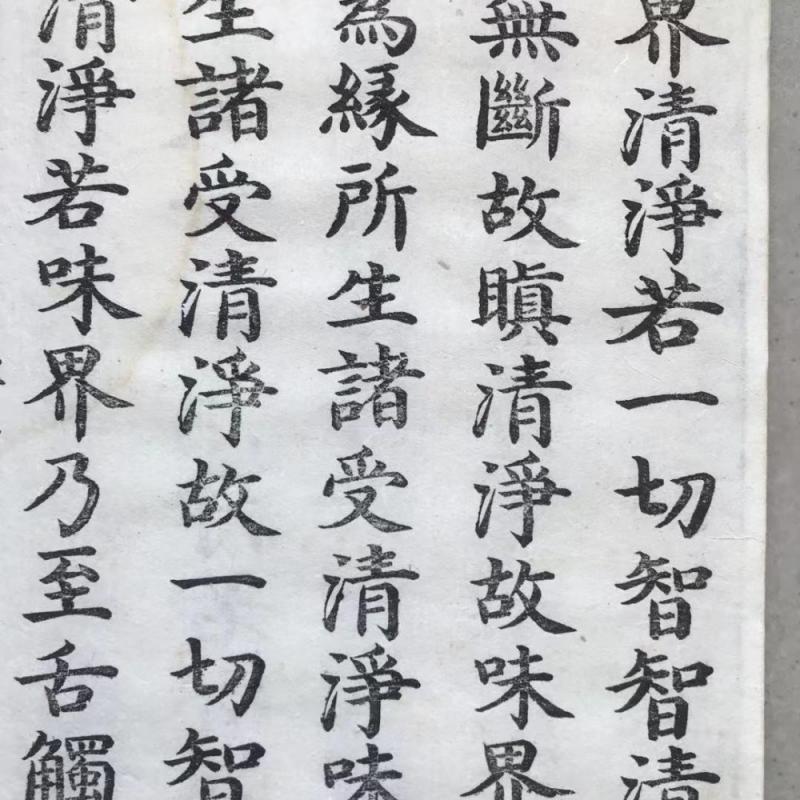 界清淨若一切智智清
無斷故瞋清淨故味界
為緣所生諸受清淨味
生諸受清淨故一切智
清淨若味界乃至舌觸